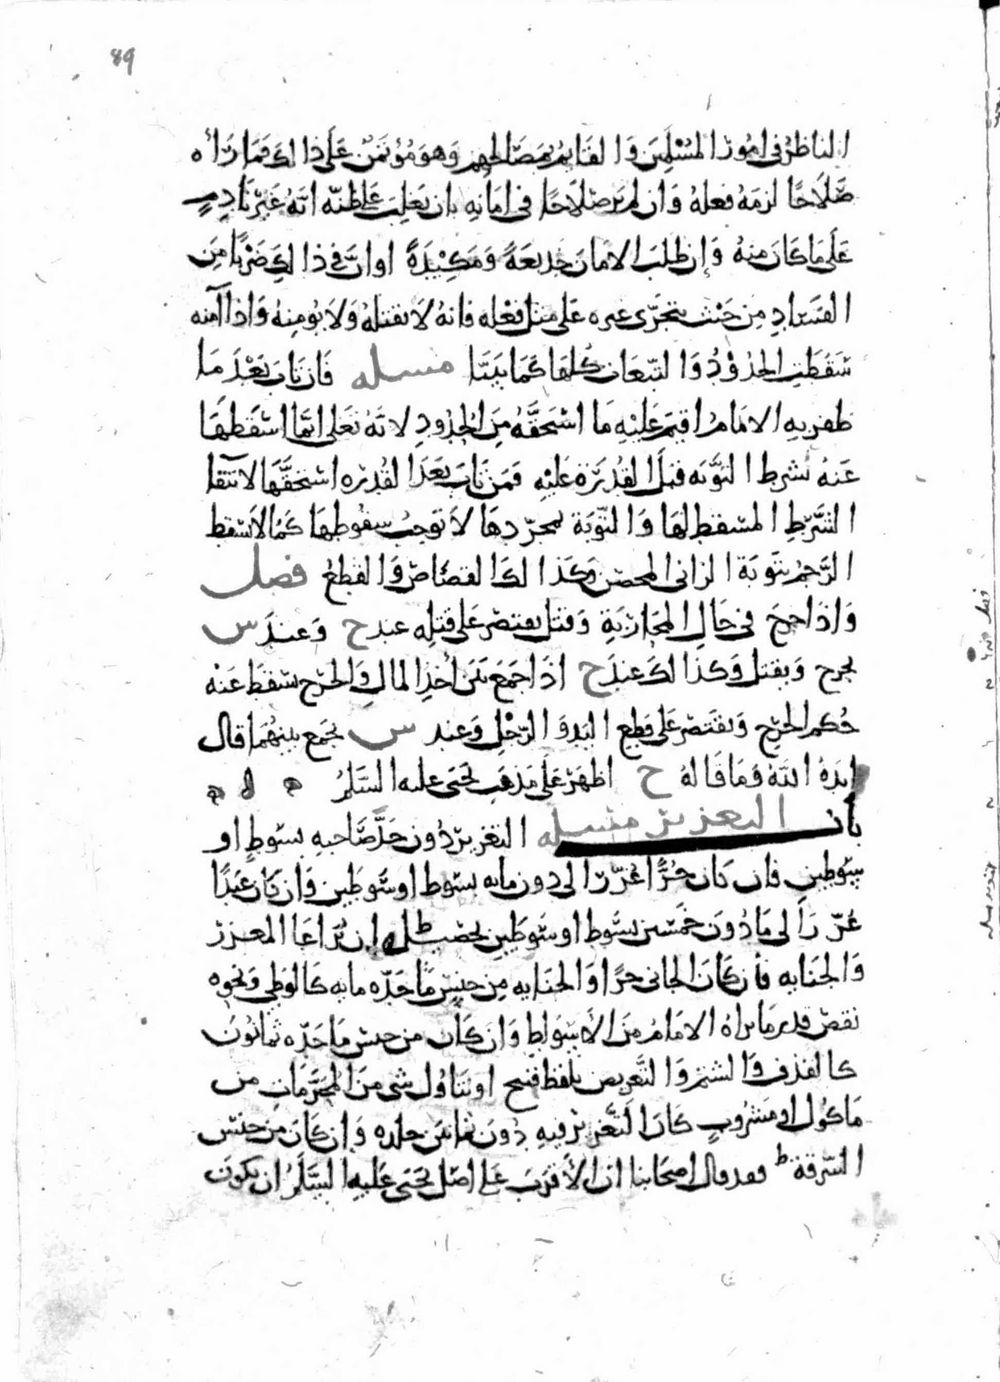 89
الناظر في امور المسلمين والقايم بمصالحهم وهو مؤتمن على ذالك فما رآه
صَلَاحًا لزمه فعله وان لم ير صلاحا في امانه بان يغلب على ظنه انه غير نادم
على ما كان منه وإن طلب الامان خديعةً ومكيدةً او ان في ذالك ضربًا من
الفساد من حيث يتجرى غيره على مثل فعله فانه لا يقتله ولا يؤمنه واذا آمنه
سقطت الحدود والتبعات كلها كما بينا مسله فان تاب بعد ما
ظفر به الامام اقيم عليه ما استحقه من الحدود لانه تعلى انما اسقطها
عنه بشرط التوبه قبل القدرة عليه فمن تاب بعد القدره استحقها لانتفا
الشرط المسقط لها والتوبة بمجردها لا توجب سقوطها كما لا تسقط
الرجم بتوبة الزاني المحصن وكذالك القصاص والقطع فصل
واذا جرح في حال المحاربة وقتل يقتصر على قتله عند ح وعند س
يجرح ويقتل وكذالك عند ح اذا جمع بين اخذ المال والجرح سقط عنه
حكم الجرح ويقتصر على قطع اليد والرجل وعند س يجمع بينهما قال
ايده الله فما قاله ح اظهر على مذهب يحيى عليه السلم
باب التعزير مسله التعزير دون حد صاحبه بسوط او
سوطين فان كان حرًّا عُزّر الى دون مايه بسوط او سوطين وان كان عبدًا
عُزّر الى ما دون خمسين بسوط او سوطين ان يراعا المعزر
والجنايه فان كان الجاني حرا والجنايه من جنس ما حده مايه كالوطي ونحوه
نقص قدر ما يراه الامام من الاسواط وان كان من جنس ما حده ثمانون
كالقذف والشتم والتعريض بلفظ قبيح او تناول شي من المحرمات من
ماكول او مشروب كان التعزير فيه دون ثمانين جلده وان كان من جنس
السرقة فقد قال اصحابنا ان الاقرب على اصل يحيى عليه السلم ان يكون